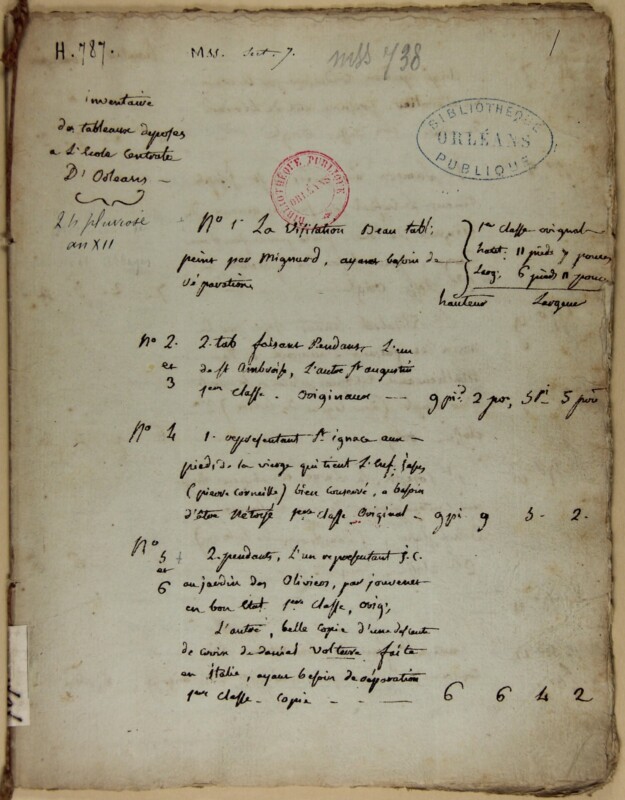 H. 787.
Mss. Sect. 7.
mss 738
1
inventaire
des tableaux deposes
a L'Ecole Centrale
D'Orleans —
24 pluviose
an XII
BIBLIOTHÈQUE PUBLIQUE
ORLÉANS
BIBLIOTHÈQUE
ORLÉANS
PUBLIQUE
No 1er La Visitation Beau tabl:
peint par Mignard, ayant besoin de
réparations
1re classe original
haut: 11 pieds 7 pouces
Larg: 6 pieds 11 pouces
hauteur Largeur
No 2. 2. tab faisant Pendants, L'un
et de St Ambroise, L'autre St augustin
3 1ere Classe. Originaux — 9 pid. 2 po, 5 Pi 5 po
No 4 1. representant St ignace aux
pieds de la vierge qui tient L'enf. jesus
(pierre Corneille) bien conservé, a besoin
d'être Nétoyé 1ere Classe Original — 9 pi 9 5. 2.
No 5 2. pendants, L'un representant j.C.
et au jardin des Oliviers, par jouvenet
6 en bon Etat 1ere Classe, orig;
L'autre, belle copie d'une descente
de croix de daniel Volterre faite
en Italie, ayant besoin de réparation
1ere Classe — Copie — — 6 6 4 2